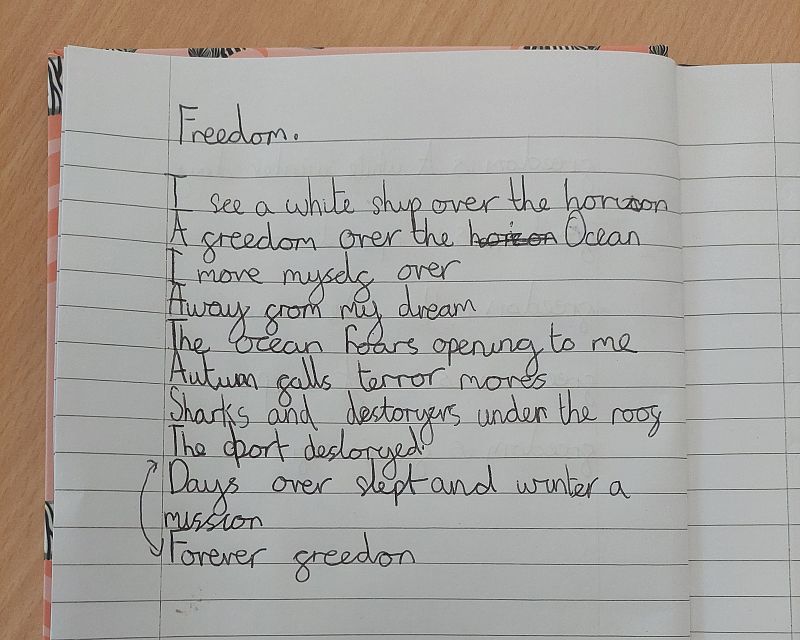 Freedom.
I see a white ship over the horizon
A freedom over the Ocean
I move myself over
Away from my dream
The ocean opening to me
Autumn falls terror moves
Sharks and destoryers under the roof
The port destoryed.
Days over slept and winter a
mission
Forever freedon